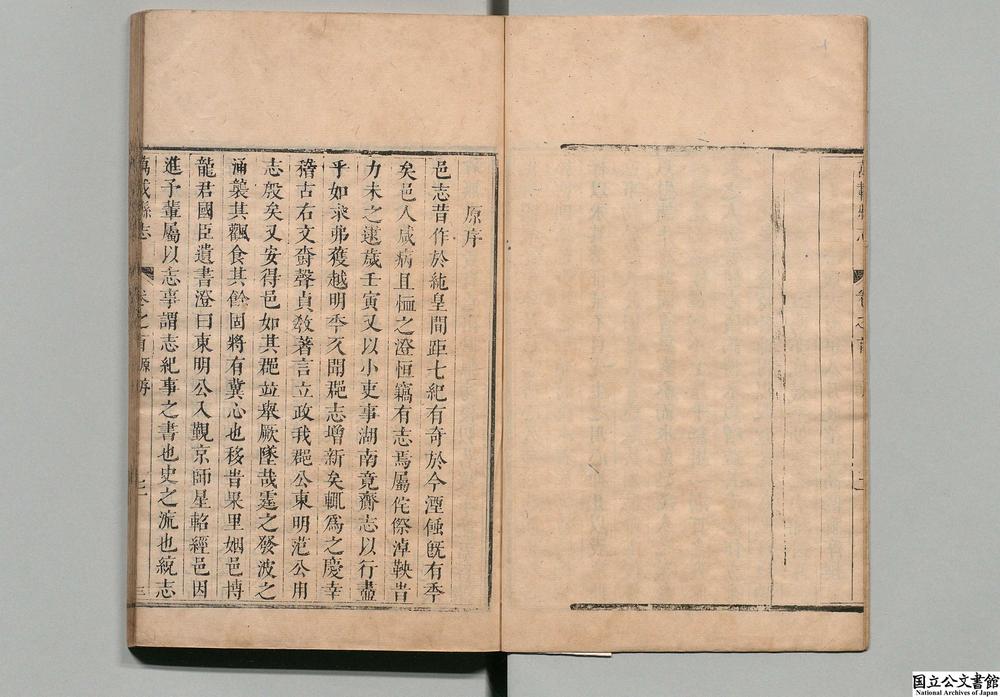 原序
邑志昔作於純皇間距七紀有奇於今湮蝕旣有季
矣邑人咸病且恤之澄恒竊有志焉屬侘傺淖鞅肯
力未之逮歲壬寅又以小吏事湖南竟齎志以行盡
乎如求弗獲越明季又聞郡志增新矣輒爲之慶幸
稽古右文奝聲貞敎著言立政我郡公東明范公用
志殷矣又安得邑如其郡竝舉厥墜哉霆之發波之
涌襲其飌食其餘固將有冀心也移旹果里姻邑博
龍君國臣遺書澄曰東明公入覲京師星軺經邑因
進予輩屬以志事謂志紀事之書也史之流也統志
萬載縣志
卷之首
原序
三
国立公文書館
National Archives of Japan